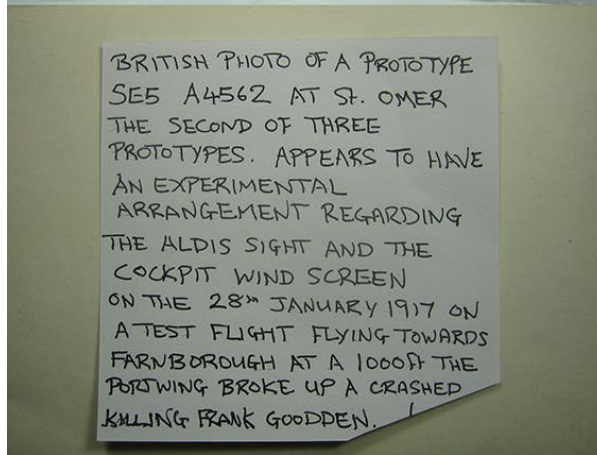 BRITISH PHOTO OF A PROTOTYPE
SE5 A4562 AT St. OMER
THE SECOND OF THREE
PROTOTYPES. APPEARS TO HAVE
AN EXPERIMENTAL
ARRANGEMENT REGARDING
THE ALDIS SIGHT AND THE
COCKPIT WIND SCREEN
ON THE 28TH JANUARY 1917 ON
A TEST FLIGHT FLYING TOWARDS
FARNBOROUGH AT A 1000ft THE
PORTWING BROKE UP A CRASHED
KILLING FRANK GOODDEN.